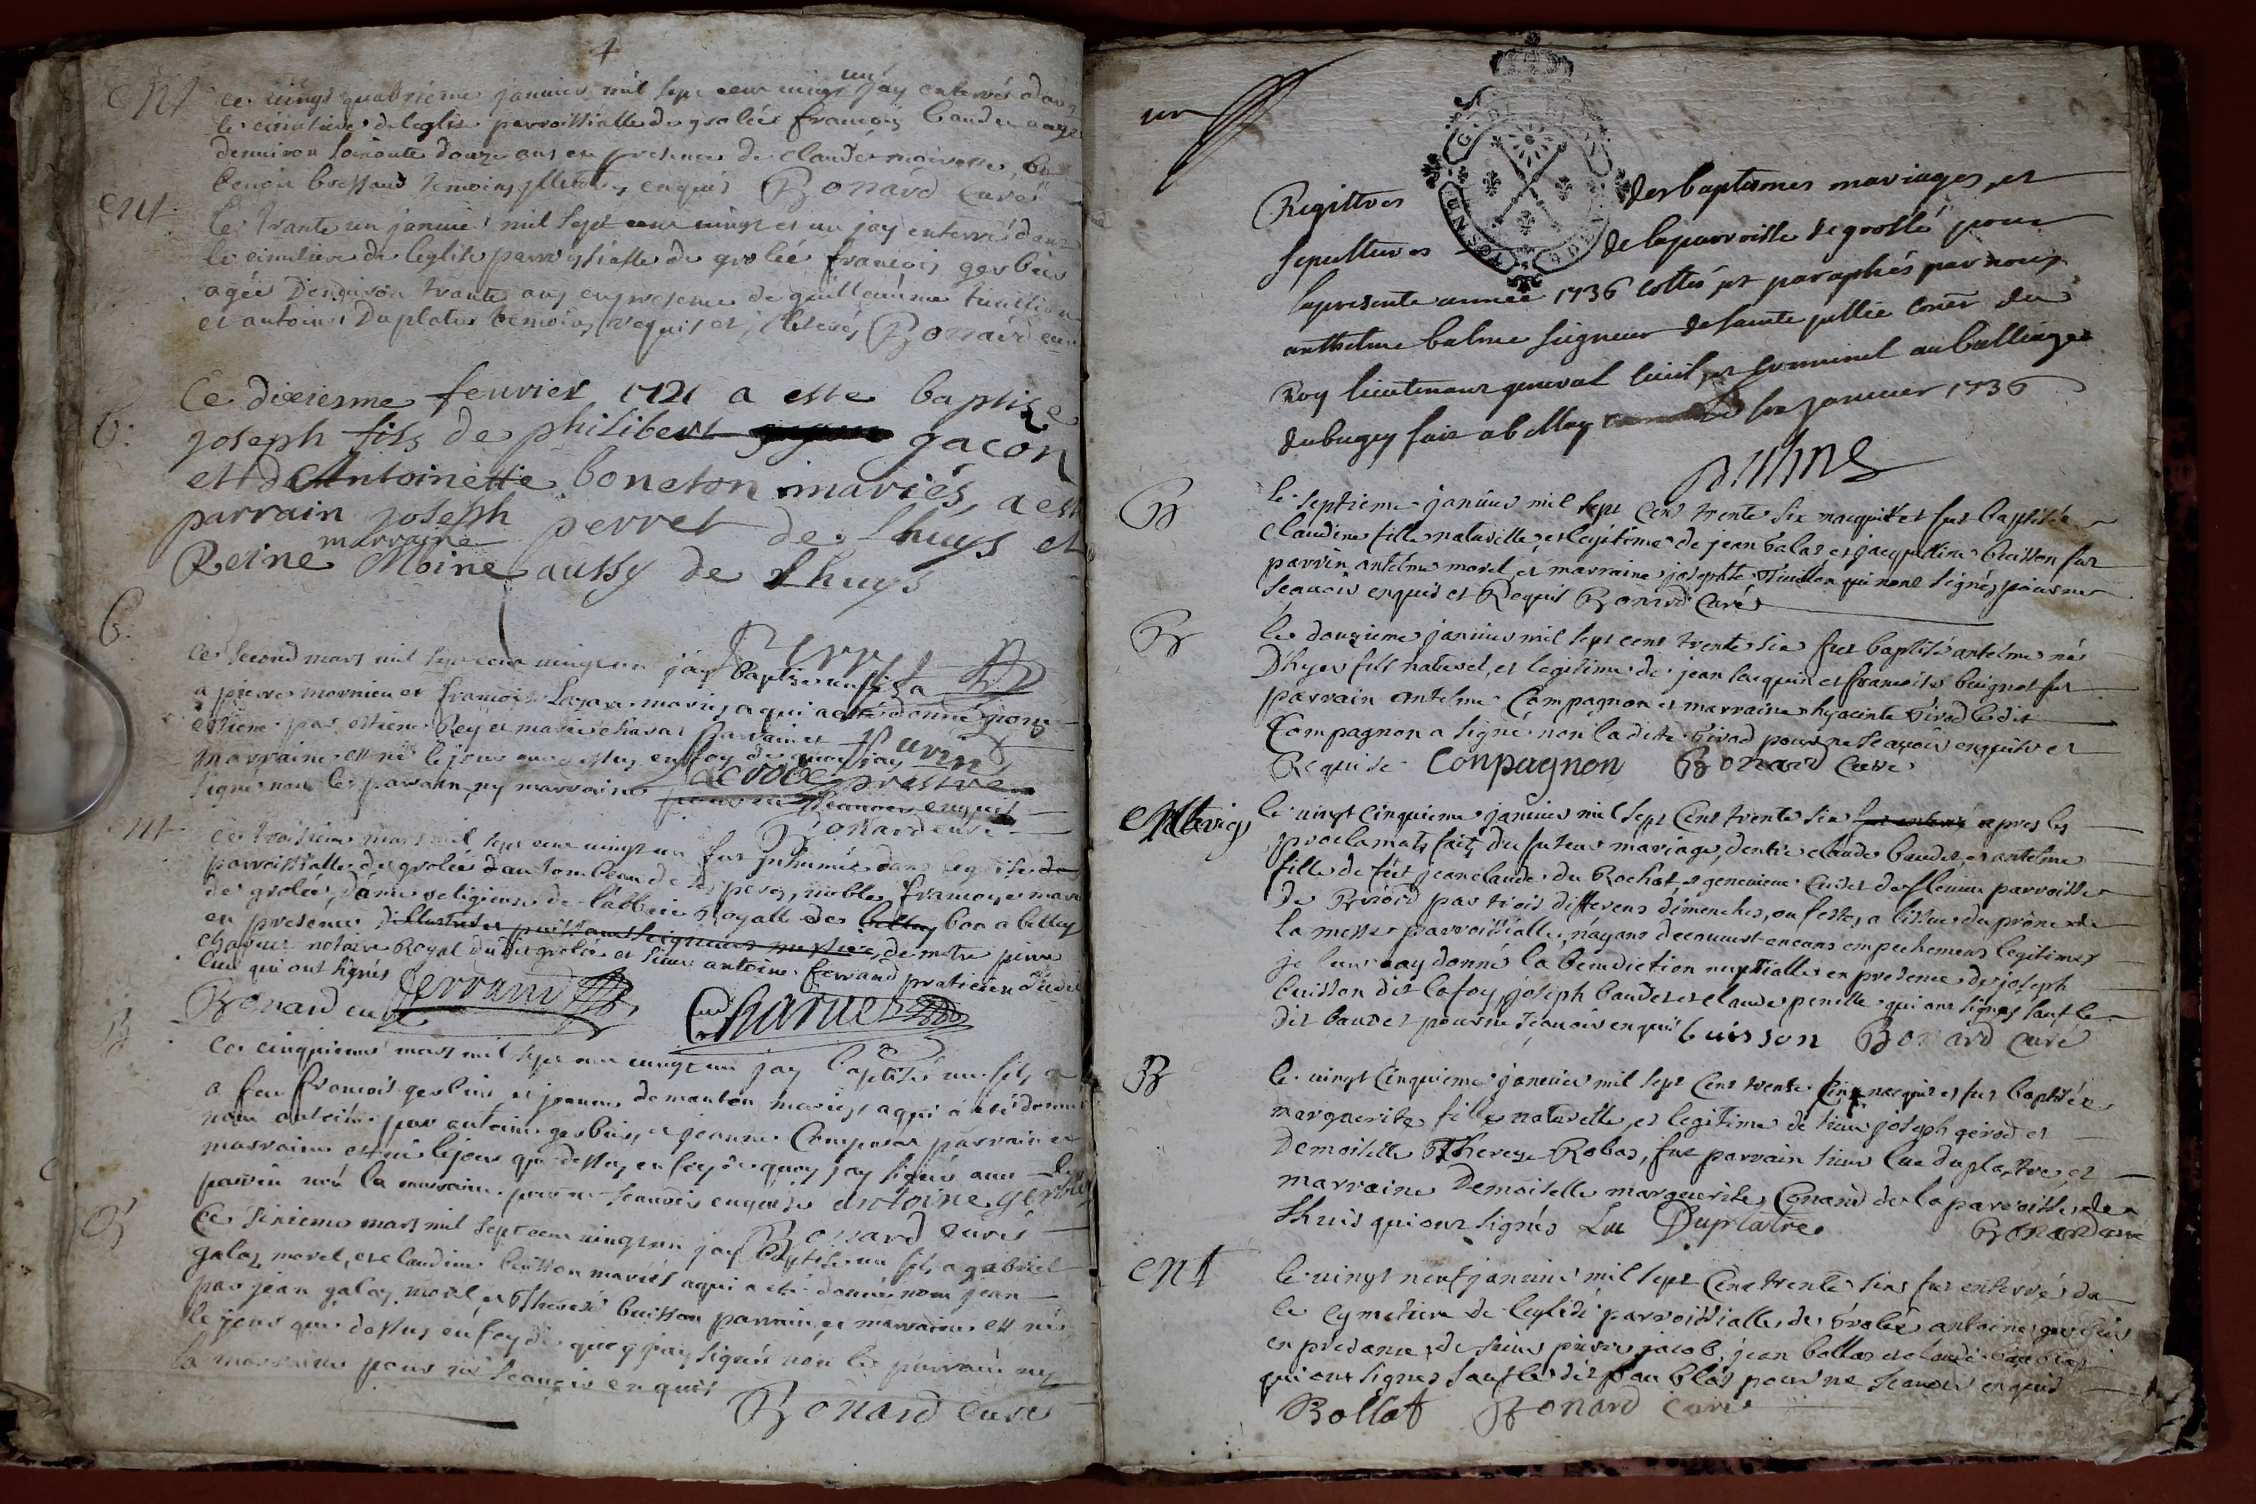 4
ent
ce vingt quatrieme janvier mil sept cent vingt un jay enterré dans
le cimitiere de leglise parroissialle de groléé françois baudet aagé
denviron soixante douze ans en presence de claude
benoit bressand temoins illiterés enquis Bonard curé
ent
le trante un janvié mil sept cent vingt et un jay enterré dans
le cimitiere de leglise parroissialle de groleé françois gerbeis
agée denviron trante ans en presence de guillaume
et antoine Duplatre temoins requis et illiterés Bonard curé
b:
Ce dixiesme fevrier 1721 a este baptize
joseph fils de philibert gacon
et de Antoinette boneton mariés, a esté
parrain joseph perret de lhuys et
marraine
Reine Moine aussy de Lhuys
b:
ce second mars mil sept cent vingt un jay baptisé un fils a
a pierre mornieu et françoise mariés a qui a esté donné nom
estiene par estiene Rey et marie chavas parrain et
marraine est né le jour que dessus en foy de quoy jay
signé non le parrain ny marraine pour ne scavoir enquis
Bonard curé
ent
ce troisieme mars mil sept cent vingt un fut inhumée dans leglise
parroissialle de groleé dans tombeau de ses peres, noble françoise marie
de groleé, dame religieuse de labbeie Royalle des bon a belley
en presence dillustre et puissant seigneur messire, de mtre pierre
charvet notaire Royal dudit groleé et sieur antoine ferrand praticien dudit
lieu qui ont signés
Bonard curé ferrand Charvet
B
ce cinquieme mars mil sept cent vingt un jay baptisé un fils
a feu françois gerbeis, et jeanne demanton mariés a qui a eté donné
nom antoine par antoine gerbeis, et jeanne Composat parrain et
marraine est né le jour que dessus en foy de quoy jay signé avec le
parrin non la marraine pour ne scavoir enquise antoine gerbeis
Bonard curé
B
Ce sixieme mars mil sept cent vingt un jay baptisé un fils a gabriel
galay morel, et claudine buisson mariés a qui a eté donné nom jean
par jean galay morel, et Therese buisson parrain, et marraine est né
le jour que dessus en foy de quoy jay signé non le parrain ny
la marraine pour ne scavoir enquis
Bonard curé
un
Registres des baptemes mariages, et
sepultures de la parroisse de grollé pour
la presente année 1736 cottés et paraphés par nous
anthelme balme seigneur de sainte jullie coner du
Roy lieutenant general civil, et criminel au balliage
du bugey fait a belley le janvier 1736
Balme
B
le septieme janvier mil sept cent trente six nacquit et fut baptisée
Claudine fille naturelle, et legitime de jean balas et jacqueline buisson fut
parrin antelme morel et marraine josephte Tiuillon qui nont signés pour ne
scavoir enquis et Requis Bonard Curé
B
le douzieme janvier mil sept cent trente six fut baptisé antelme né
Dhyer fils naturel, et legitime de jean lacquin et françoise buignot fut
parrain antelme Compagnon et marraine hyacinte Girod ledit
Compagnon a signé non la dite Girod pour ne scavoir enquise et
Requise Conpagnon Bonard Curé
Mariag
le vingt cinquieme janvier mil sept Cent trente six apres les
proclamats faits du futeur mariage, dentre claude baudet et antelme
fille de feut jean claude du Rochat, et genevieve Cudet de flevieu parroisse
de Briord par trois differens dimenches, ou festes a lissue du prône de
la messe parroissialle, nayant decouvert encuns empechemens legitimes
je leur ay donné la benediction nuptialle en presence de joseph
buisson dit lafoy, joseph baudet et claude penille qui ont signés sauf le
dit baudet pour ne scavoir enquis buisson Bonard curé
B
le vingt Cinquieme janvier mil sept Cent trente six nacquit et fut baptisée
marguerite fille naturelle, et legitime de sieur joseph girod et
Demoiselle Therese Robas, fut parrain sieur luc duplastre, et
marraine Demoiselle marguerite Conand de la parroisse de
Lhuis qui ont signés Luc Duplatre Bonard curé
ent
le vingt neuf janvier mil sept Cent trente six fut enterré da
le Cymetiere de leglise parroissialle de Groleé antoine gerbeis
en presance, de sieur pierre jacob, jean bollat et claude
qui ont signes sauf le dit pour ne scavoir enquis
Bollat Bonard Curé